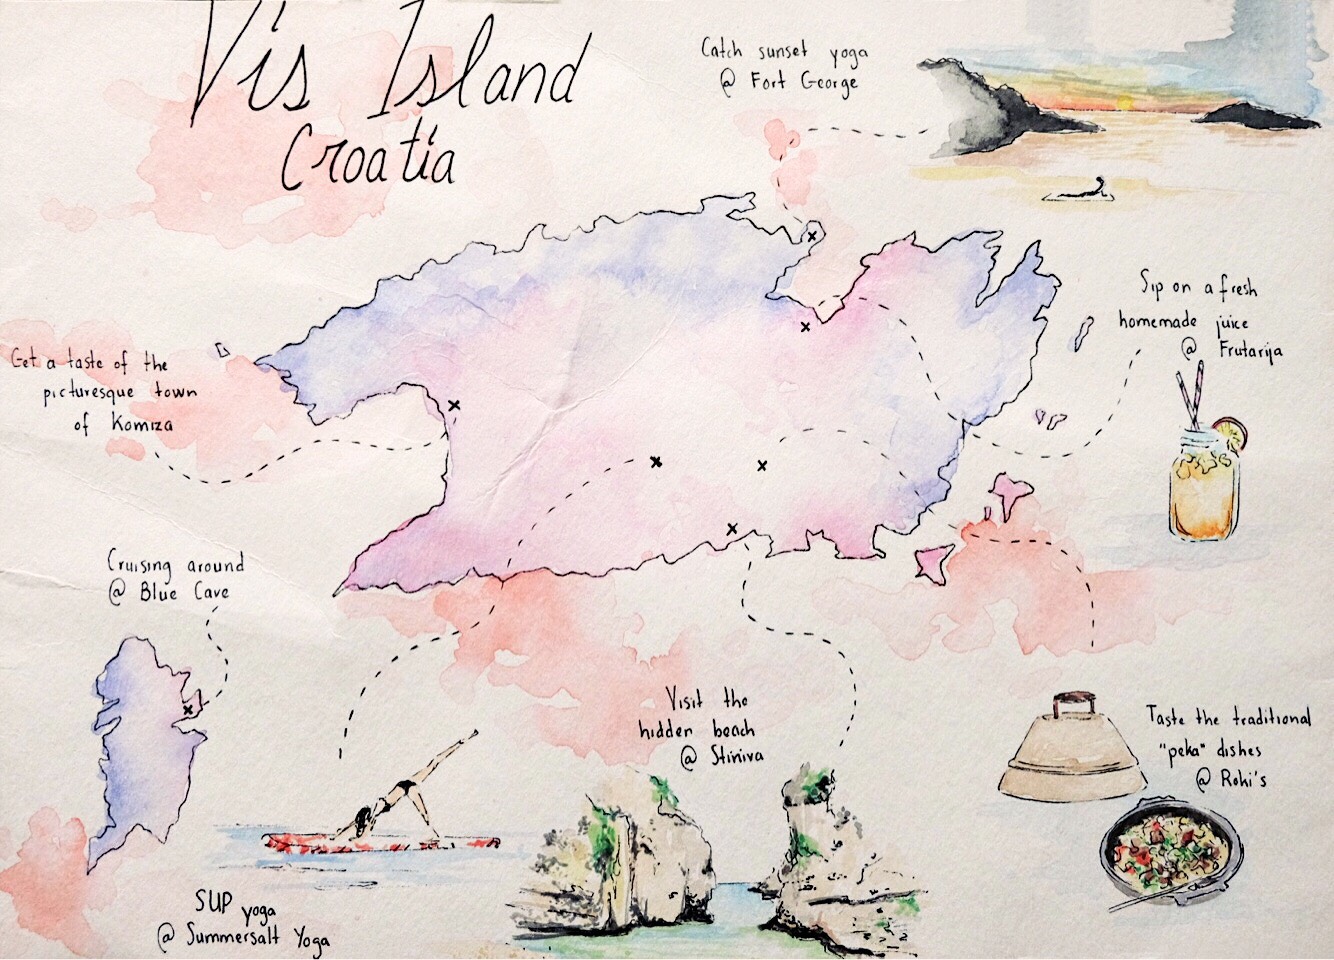 Vis Island
Croatia
Catch sunset yoga
@ Fort George
Sip on a fresh
homemade juice
@ Frutarija
Get a taste of the
picturesque town
of Komiza
Cruising around
@ Blue Cave
Visit the
hidden beach
@ Stiniva
Taste the traditional
"peka" dishes
@ Roki's
SUP yoga
@ Summersalt Yoga